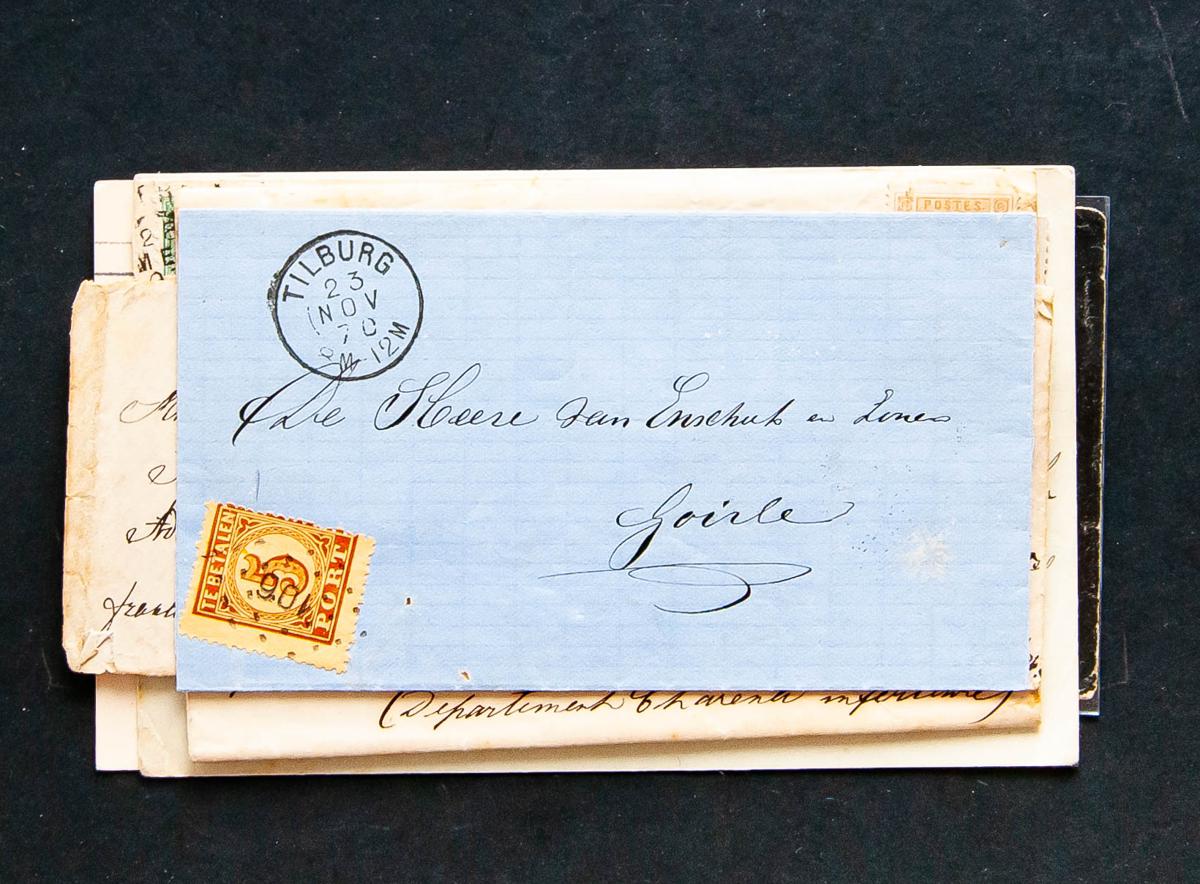 POSTES
TILBURG
23
NOV
70
8M-12M
De Heere van Enschut en Zonen
Goirle
TE BETALEN
PORT
5
106
franc
(Departement Charente inferieure)